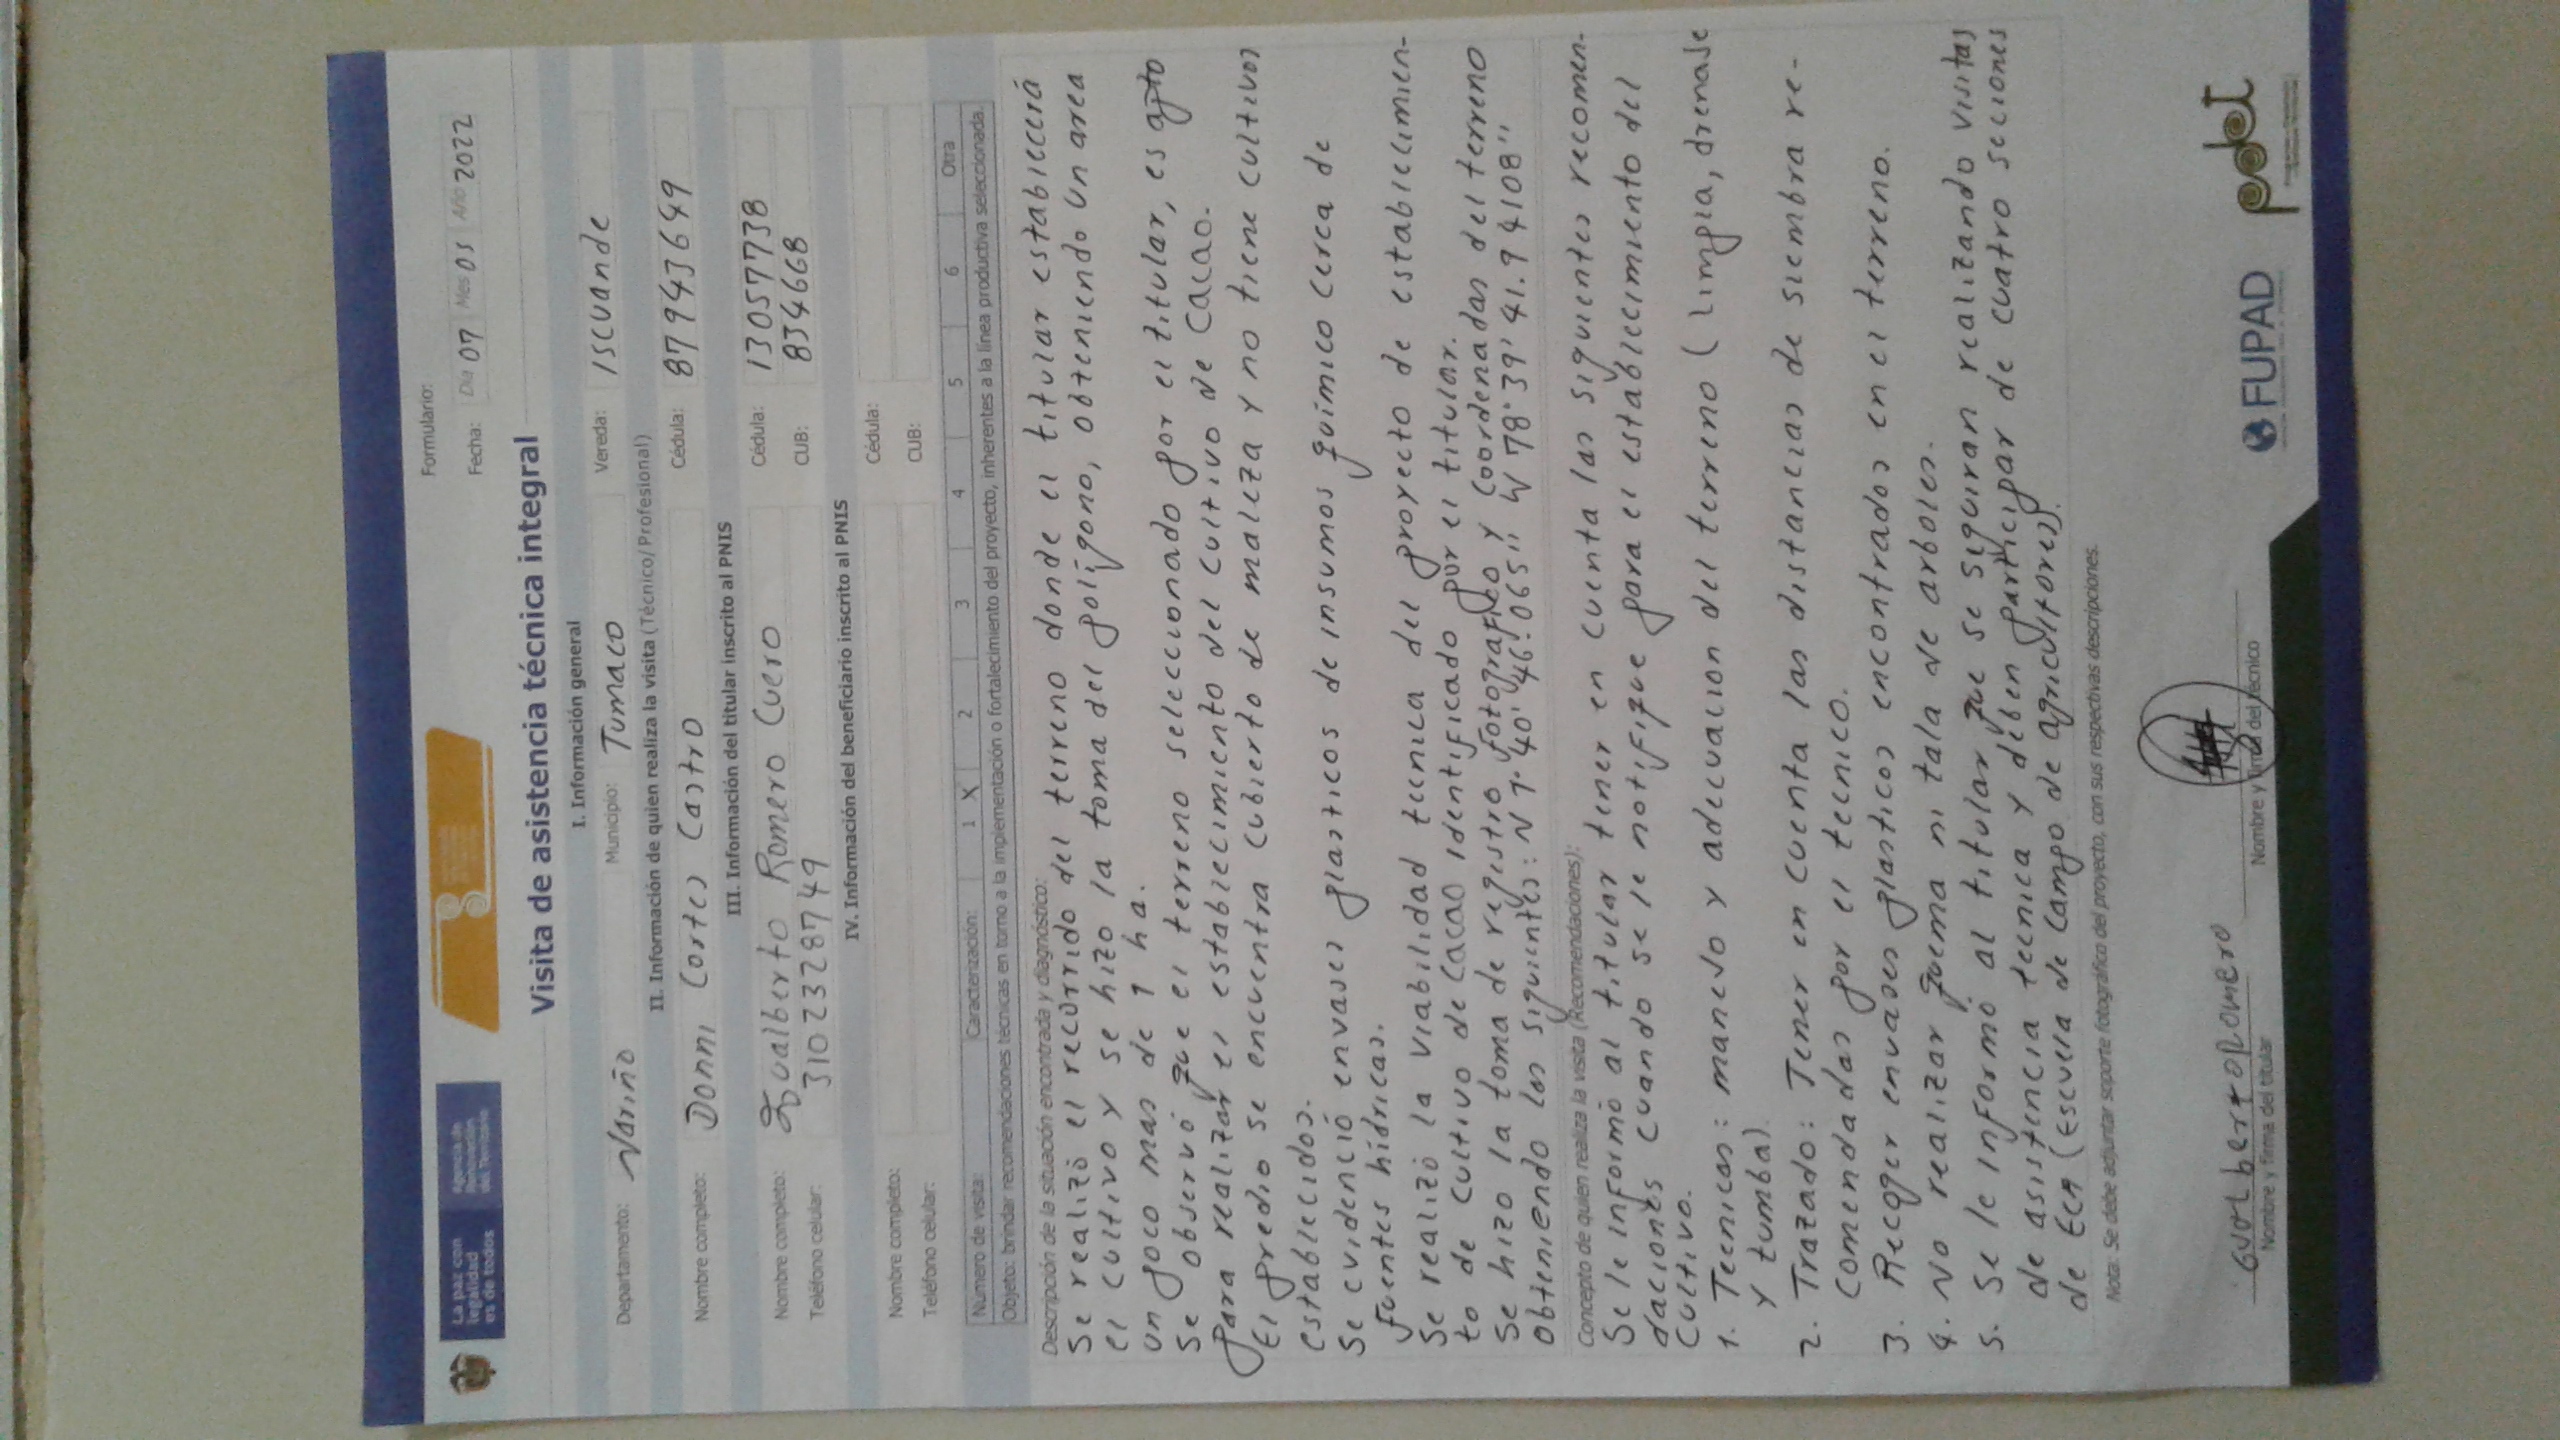 La paz con
legalidad
es de todos
Agencia de
Renovación
del Territorio
Formulario:
Fecha: Día 07 Mes 03 Año 2022
Visita de asistencia técnica integral
I. Información general
Departamento: Nariño Municipio: Tumaco Vereda: Iscuande
II. Información de quien realiza la visita (Técnico/Profesional)
Nombre completo: Donni Cortes Castro Cédula: 87943649
III. Información del titular inscrito al PNIS
Nombre completo: Gualberto Romero Cuero Cédula: 13057738
Teléfono celular: 3102328749 CUB: 834668
IV. Información del beneficiario inscrito al PNIS
Nombre completo: Cédula:
Teléfono celular: CUB:
Número de visita: Caracterización: 1 X 2 3 4 5 6 Otra
Objeto: brindar recomendaciones técnicas en torno a la implementación o fortalecimiento del proyecto, inherentes a la línea productiva seleccionada.
Descripción de la situación encontrada y diagnóstico:
Se realizó el recorrido del terreno donde el titular establecerá
el cultivo y se hizo la toma del polígono, obteniendo un area
un poco mas de 1 ha.
Se observó que el terreno seleccionado por el titular, es apto
para realizar el establecimiento del cultivo de Cacao.
El predio se encuentra cubierto de maleza y no tiene cultivos
establecidos.
Se evidenció envases plasticos de insumos químico cerca de
fuentes hídricas.
Se realizó la viabilidad tecnica del proyecto de establecimien-
to de cultivo de cacao identificado por el titular.
Se hizo la toma de registro fotografico y coordenadas del terreno
obteniendo las siguientes: N 1° 40' 46.065" W 78° 39' 41.94108"
Concepto de quien realiza la visita (Recomendaciones):
Se le informó al titular tener en cuenta las siguientes recomen-
daciones cuando se le notifique para el establecimiento del
cultivo.
1. Tecnicas: manejo y adecuacion del terreno (limpia, drenaje
y tumba).
2. Trazado: Tener en cuenta las distancias de siembra re-
comendadas por el tecnico.
3. Recoger envases plasticos encontrados en el terreno.
4. No realizar quema ni tala de arboles.
5. Se le informó al titular que se seguiran realizando visitas
de asistencia tecnica y deben participar de cuatro seciones
de ECA (escuela de campo de agricultores).
Nota: Se debe adjuntar soporte fotográfico del proyecto, con sus respectivas descripciones.
Gualberto Romero
Nombre y firma del titular
Nombre y firma del técnico
FUPAD
pdet